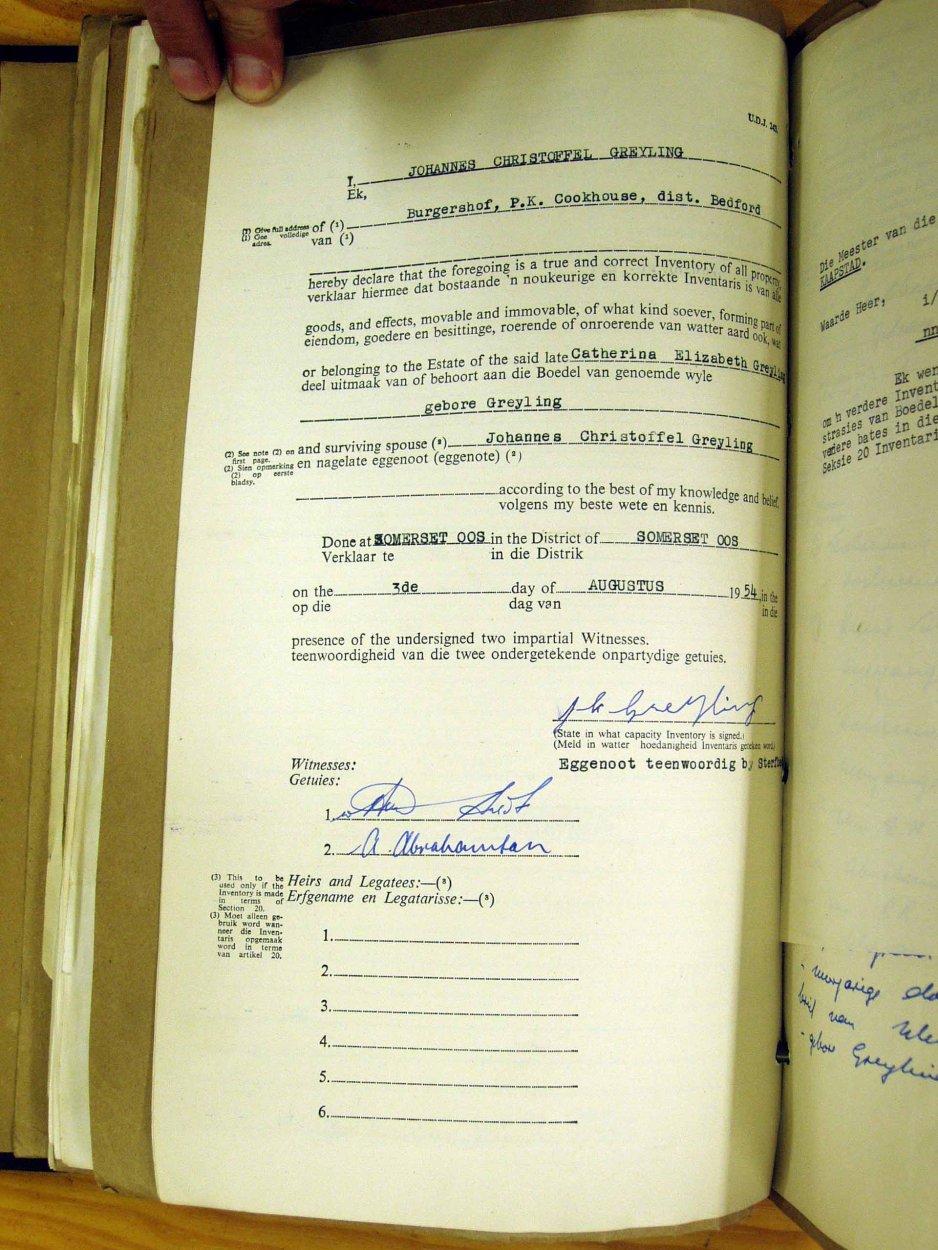 U.D.J. 243.
I, JOHANNES CHRISTOFFEL GREYLING
Ek,
(1) Give full address of (1) Burgershof, P.K. Cookhouse, dist. Bedford
(1) Gee volledige adres. van (1)
hereby declare that the foregoing is a true and correct Inventory of all property,
verklaar hiermee dat bostaande 'n noukeurige en korrekte Inventaris is van alle
goods, and effects, movable and immovable, of what kind soever, forming part of
eiendom, goedere en besittinge, roerende of onroerende van watter aard ook, wat
or belonging to the Estate of the said late Catherina Elizabeth Greyling
deel uitmaak van of behoort aan die Boedel van genoemde wyle
gebore Greyling
(2) See note (2) on first page.
(2) Sien opmerking (2) op eerste bladsy.
and surviving spouse (2) Johannes Christoffel Greyling
en nagelate eggenoot (eggenote) (2)
according to the best of my knowledge and belief.
volgens my beste wete en kennis.
Done at SOMERSET OOS in the District of SOMERSET OOS
Verklaar te in die Distrik
on the 3de day of AUGUSTUS 1954, in the
op die dag van in die
presence of the undersigned two impartial Witnesses.
teenwoordigheid van die twee ondergetekende onpartydige getuies.
Greyling
(State in what capacity Inventory is signed.)
(Meld in watter hoedanigheid Inventaris geteken word)
Eggenoot teenwoordig by
Witnesses:
Getuies:
1.
2. A. Abrahamson
(3) This to be
used only if the
Inventory is made
in terms of
Section 20.
(3) Moet alleen ge-
bruik word wan-
neer die Inven-
taris opgemaak
word in terme
van artikel 20.
Heirs and Legatees:—(3)
Erfgename en Legatarisse:—(3)
1.
2.
3.
4.
5.
6.
Die Meester van die
KAAPSTAD.
Waarde Heer,
i/
nn
Ek wen
om 'n verdere Invent
strasies van Boedel
verdere bates in die
Seksie 20 Inventari
van
gebore